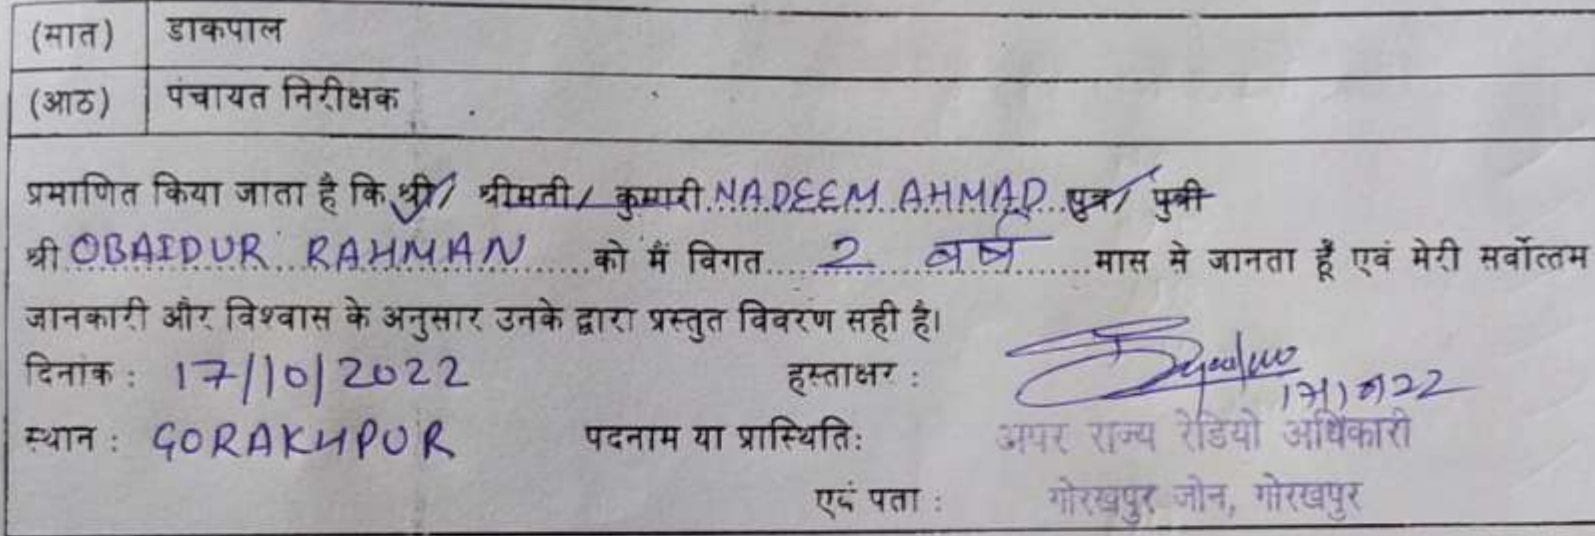 (सात) डाकपाल
(आठ) पंचायत निरीक्षक
प्रमाणित किया जाता है कि श्री/ श्रीमती/ कुमारी NADEEM AHMAD पुत्र/ पुत्री
श्री OBAIDUR RAHMAN को मैं विगत 2 वर्ष मास से जानता हूँ एवं मेरी सर्वोत्तम
जानकारी और विश्वास के अनुसार उनके द्वारा प्रस्तुत विवरण सही है।
दिनांक : 17/10/2022 हस्ताक्षर :
स्थान : GORAKHPUR पदनाम या प्रास्थिति: अपर राज्य रेडियो अधिकारी
एवं पता : गोरखपुर जोन, गोरखपुर